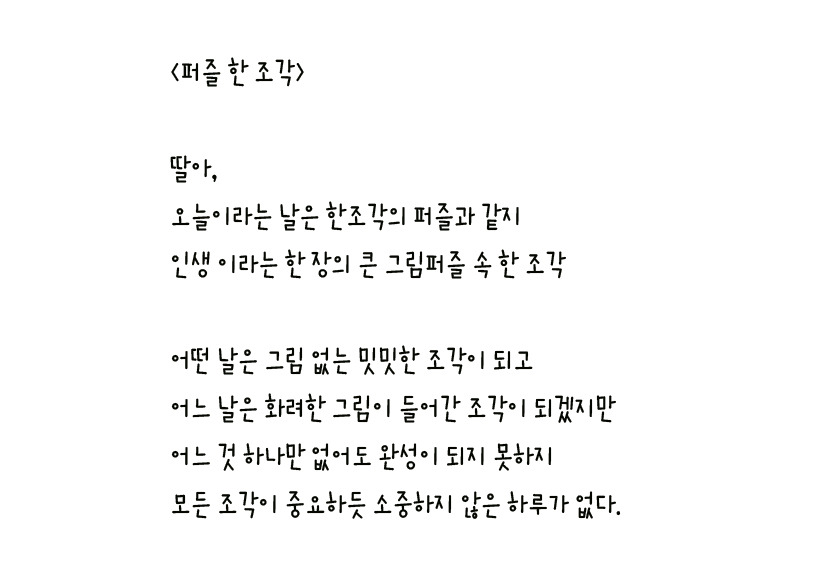 <퍼즐 한 조각>
딸아,
오늘이라는 날은 한조각의 퍼즐과 같지
인생 이라는 한 장의 큰 그림퍼즐 속 한 조각
어떤 날은 그림 없는 밋밋한 조각이 되고
어느 날은 화려한 그림이 들어간 조각이 되겠지만
어느 것 하나만 없어도 완성이 되지 못하지
모든 조각이 중요하듯 소중하지 않은 하루가 없다.